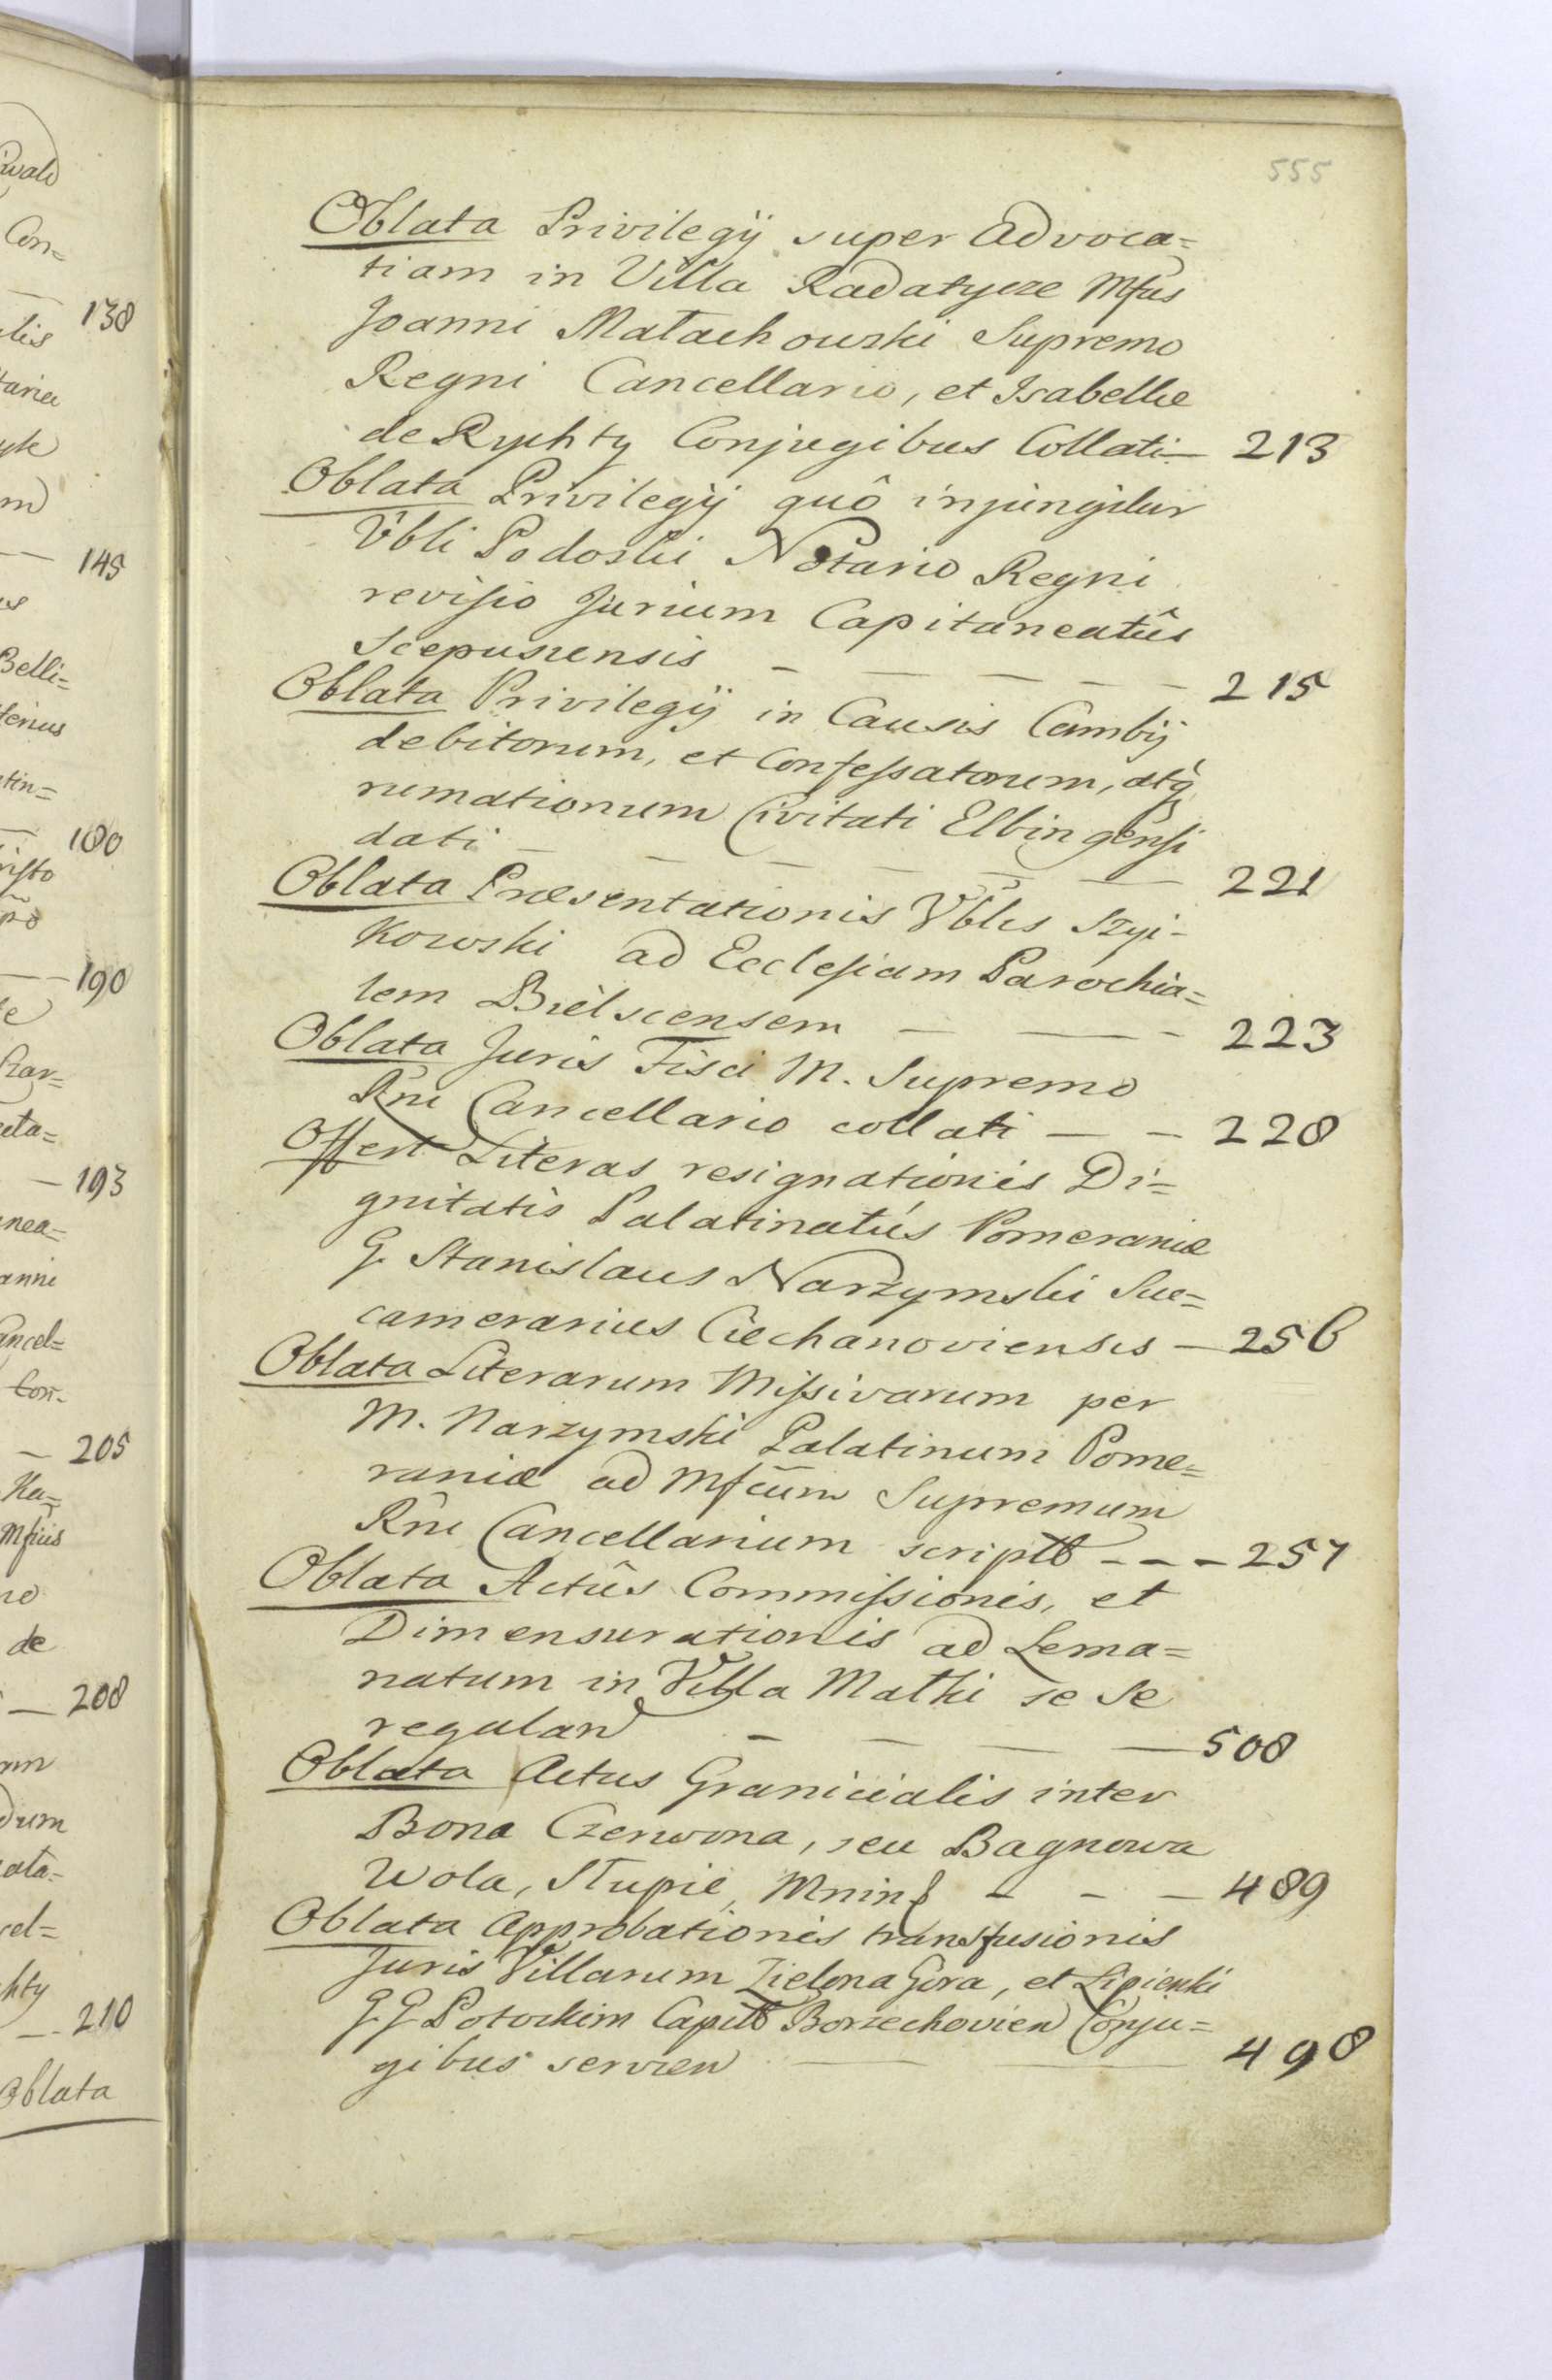 555
Oblata Privilegÿ super advoca=
tiam in Villa Radatycze Mfus
Joanni Małachowski Supremo
Regni Cancellario, et Isabellæ
de Rychty Conjugibus Collati — 213
Oblata Privilegÿ quô injungitur
Vbli Podoski Notario Regni
revisio Jurium Capitaneatûs
Scepusiensis — — — — — 215
Oblata Privilegÿ in Causis Cambÿ
debitorum, et Confessatorum, atq
rumationum Civitati Elbingensi
dati — — — — — — 221
Oblata Præsentationis Vblis Szyi-
kowski ad Ecclesiam Parochia=
lem Bielscensem — — — 223
Oblata Juris Fisci M. Supremo
Rni Cancellario collati — — 228
Offert Literas resignationis Di=
gnitatis Palatinatûs Pomeraniæ
G. Stanislaus Narzymski Suc=
camerarius Ciechanoviensis — 256
Oblata Literarum Missivarum per
M. Narzymski Palatinum Pome=
raniæ ad Mfcum Supremum
Rni Cancellarium script - - - 257
Oblata Actûs Commissionis, et
Dimensurationis ad Lema=
natum in Villa Matki se se
regulan — — — — 508
Oblata Actus Granicialis inter
Bona Czerwona, seu Bagnowa
Wola, Słupie, Mnin — — — 489
Oblata Approbationis transfusionis
Juris Villarum Zielona Góra, et Lipienki
G G Potockim Capit Borzechovien Conju=
gibus servien — — 498
138
145
Belli=
180
190
193
205
de
208
210
Oblata